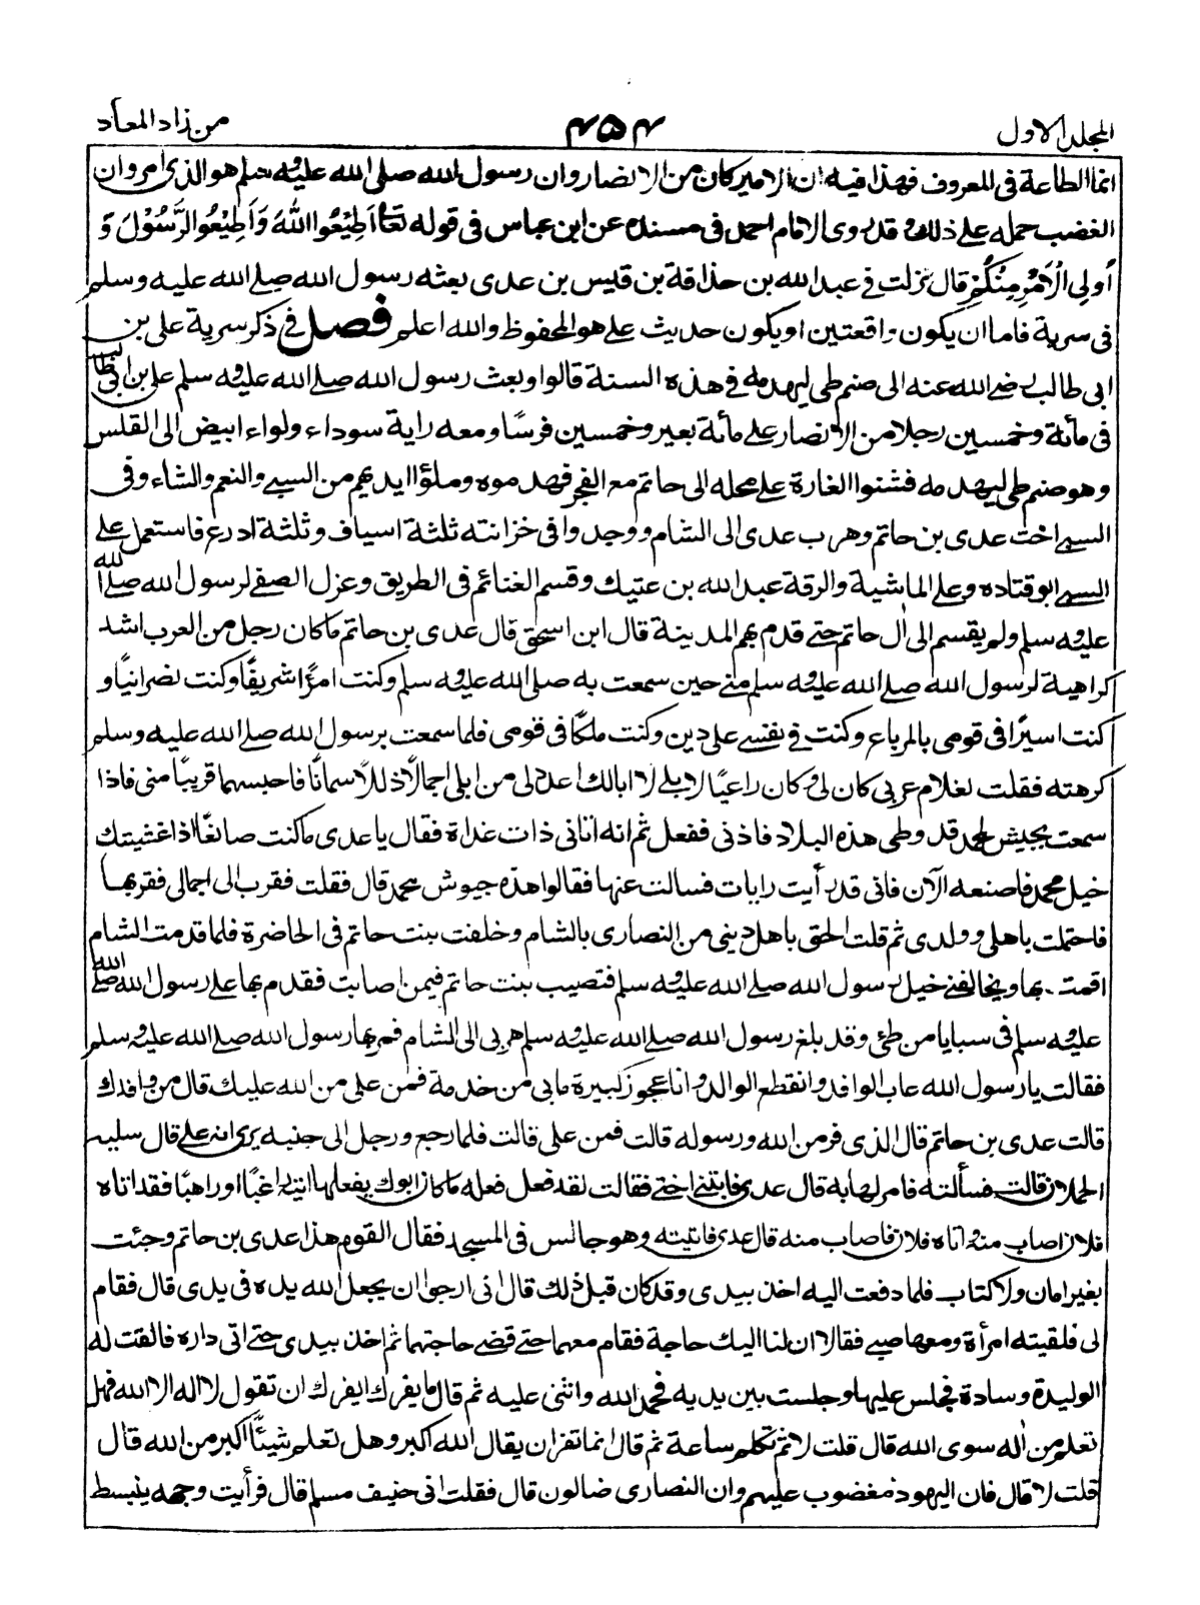 المجلد الاول
۴۵۴
من زاد المعاد
انما الطاعة فى المعروف فهذا فيه ان الامير كان من الانصار وان رسول الله صلى الله عليه وسلم هو الذى امر وان
الغضب حمله على ذلك وقد روى الامام احمد فى مسنده عن ابن عباس فى قوله تعالى اَطِيْعُوا اللّٰهَ وَاَطِيْعُوا الرَّسُوْلَ وَ
اُولِى الْاَمْرِ مِنْكُمْ قال نزلت فى عبد الله بن حذافة بن قيس بن عدى بعثه رسول الله صلے الله عليه وسلم
فى سرية فاما ان يكون واقعتين او يكون حديث على هو المحفوظ والله اعلم فصل فى ذكر سرية على بن
ابى طالب رضے الله عنه الى صنم طى ليهدمه فى هذه السنة قالوا وبعث رسول الله صلے الله عليه وسلم على بن ابى طالب
فى مائة وخمسين رجلا من الانصار على مائة بعير وخمسين فرسًا ومعه راية سوداء ولواء ابيض الى القلس
وهو صنم طى ليهدمه فشنوا الغارة على محله الى حاتم مع الفجر فهدموه وملؤا ايديهم من السبے والنعم والشاء وفى
السبے اخت عدى بن حاتم وهرب عدى الى الشام ووجدوا فى خزانته ثلثة اسياف وثلثة ادرع فاستعمل على
السبے ابو قتاده وعلى الماشية والرقة عبد الله بن عتيك وقسم الغنائم فى الطريق وعزل الصفے لرسول الله صلے الله
عليه وسلم ولم يقسم الى اٰل حاتم حتے قدم بهم المدينة قال ابن اسحق قال عدى بن حاتم ما كان رجل من العرب اشد
كراهية لرسول الله صلے الله عليه وسلم منے حين سمعت به صلى الله عليه وسلم وكنت امرًا شريفًا وكنت نصرانيًا و
كنت اسيرًا فى قومى بالمرباع وكنت فى نفسے على دين وكنت ملكًا فى قومى فلما سمعت برسول الله صلے الله عليه وسلم
كرهته فقلت لغلام عربى كان لى وكان راعيًا لابلے لا ابالك اعد لى من ابلى اجمالًا ذللًا سمانًا فاحبسهما قريبًا منى فاذا
سمعت بجيش لمحمد قد وطى هذه البلاد فاذنى ففعل ثم انه اتانى ذات غداة فقال يا عدى ما كنت صانعًا اذا غشيتك
خيل محمد فاصنعه الآن فانى قد رأيت رايات فسالت عنها فقالوا هذه جيوش محمد قال فقلت فقرب الى اجمالى فقربها
فاحتملت باهلى وولدى ثم قلت الحق باهل دينى من النصارى بالشام وخلفت بنت حاتم فى الحاضرة فلما قدمت الشام
اقمت بها ويخالفنے خيل رسول الله صلے الله عليه وسلم فتصيب بنت حاتم فيمن اصابت فقدم بها على رسول الله صلے الله
عليه وسلم فى سبايا من طئ وقد بلغ رسول الله صلے الله عليه وسلم هربى الى الشام فمر بها رسول الله صلے الله عليه وسلم
فقالت يا رسول الله غاب الوافد وانقطع الوالد وانا عجوز كبيرة ما بى من خدمة فمن على من الله عليك قال من وافدك
قالت عدى بن حاتم قال الذى فر من الله ورسوله قالت فمن على قالت فلما رجع ورجل الى جنبه يرى انه على قال سليه
الحملان قالت فسألته فامر لها به قال عدى فاتتنے اختے فقالت لقد فعل فعله ما كان ابوك يفعلها ايته راغبًا او راهبًا فقد اتاه
فلان اصاب منه واتاه فلان فاصاب منه قال عدى فاتيته وهو جالس فى المسجد فقال القوم هذا عدى بن حاتم وجئت
بغير امان ولا كتاب فلما دفعت اليه اخذ بيدى وقد كان قبل ذلك قال انى ارجو ان يجعل الله يده فى يدى قال فقام
لى فلقيته امرأة ومعها صبے فقالا ان لنا اليك حاجة فقام معهما حتے قضے حاجتهما ثم اخذ بيدى حتے اتى داره فالقت له
الوليدة وسادة فجلس عليها وجلست بين يديه فحمد الله واثنى عليه ثم قال ما يفرك ايفرك ان تقول لا اله الا الله فهل
تعلم من اٰله سوى الله قال قلت لا ثم تكلم ساعة ثم قال انما تفر ان يقال الله اكبر وهل تعلم شيئًا اكبر من الله قال
قلت لا قال فان اليهود مغضوب عليهم وان النصارى ضالون قال فقلت انى حنيف مسلم قال فرأيت وجهه ينبسط